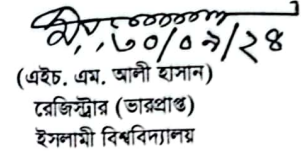 ৩০/০৯/২৪
(এইচ. এম. আলী হাসান)
রেজিস্ট্রার (ভারপ্রাপ্ত)
ইসলামী বিশ্ববিদ্যালয়